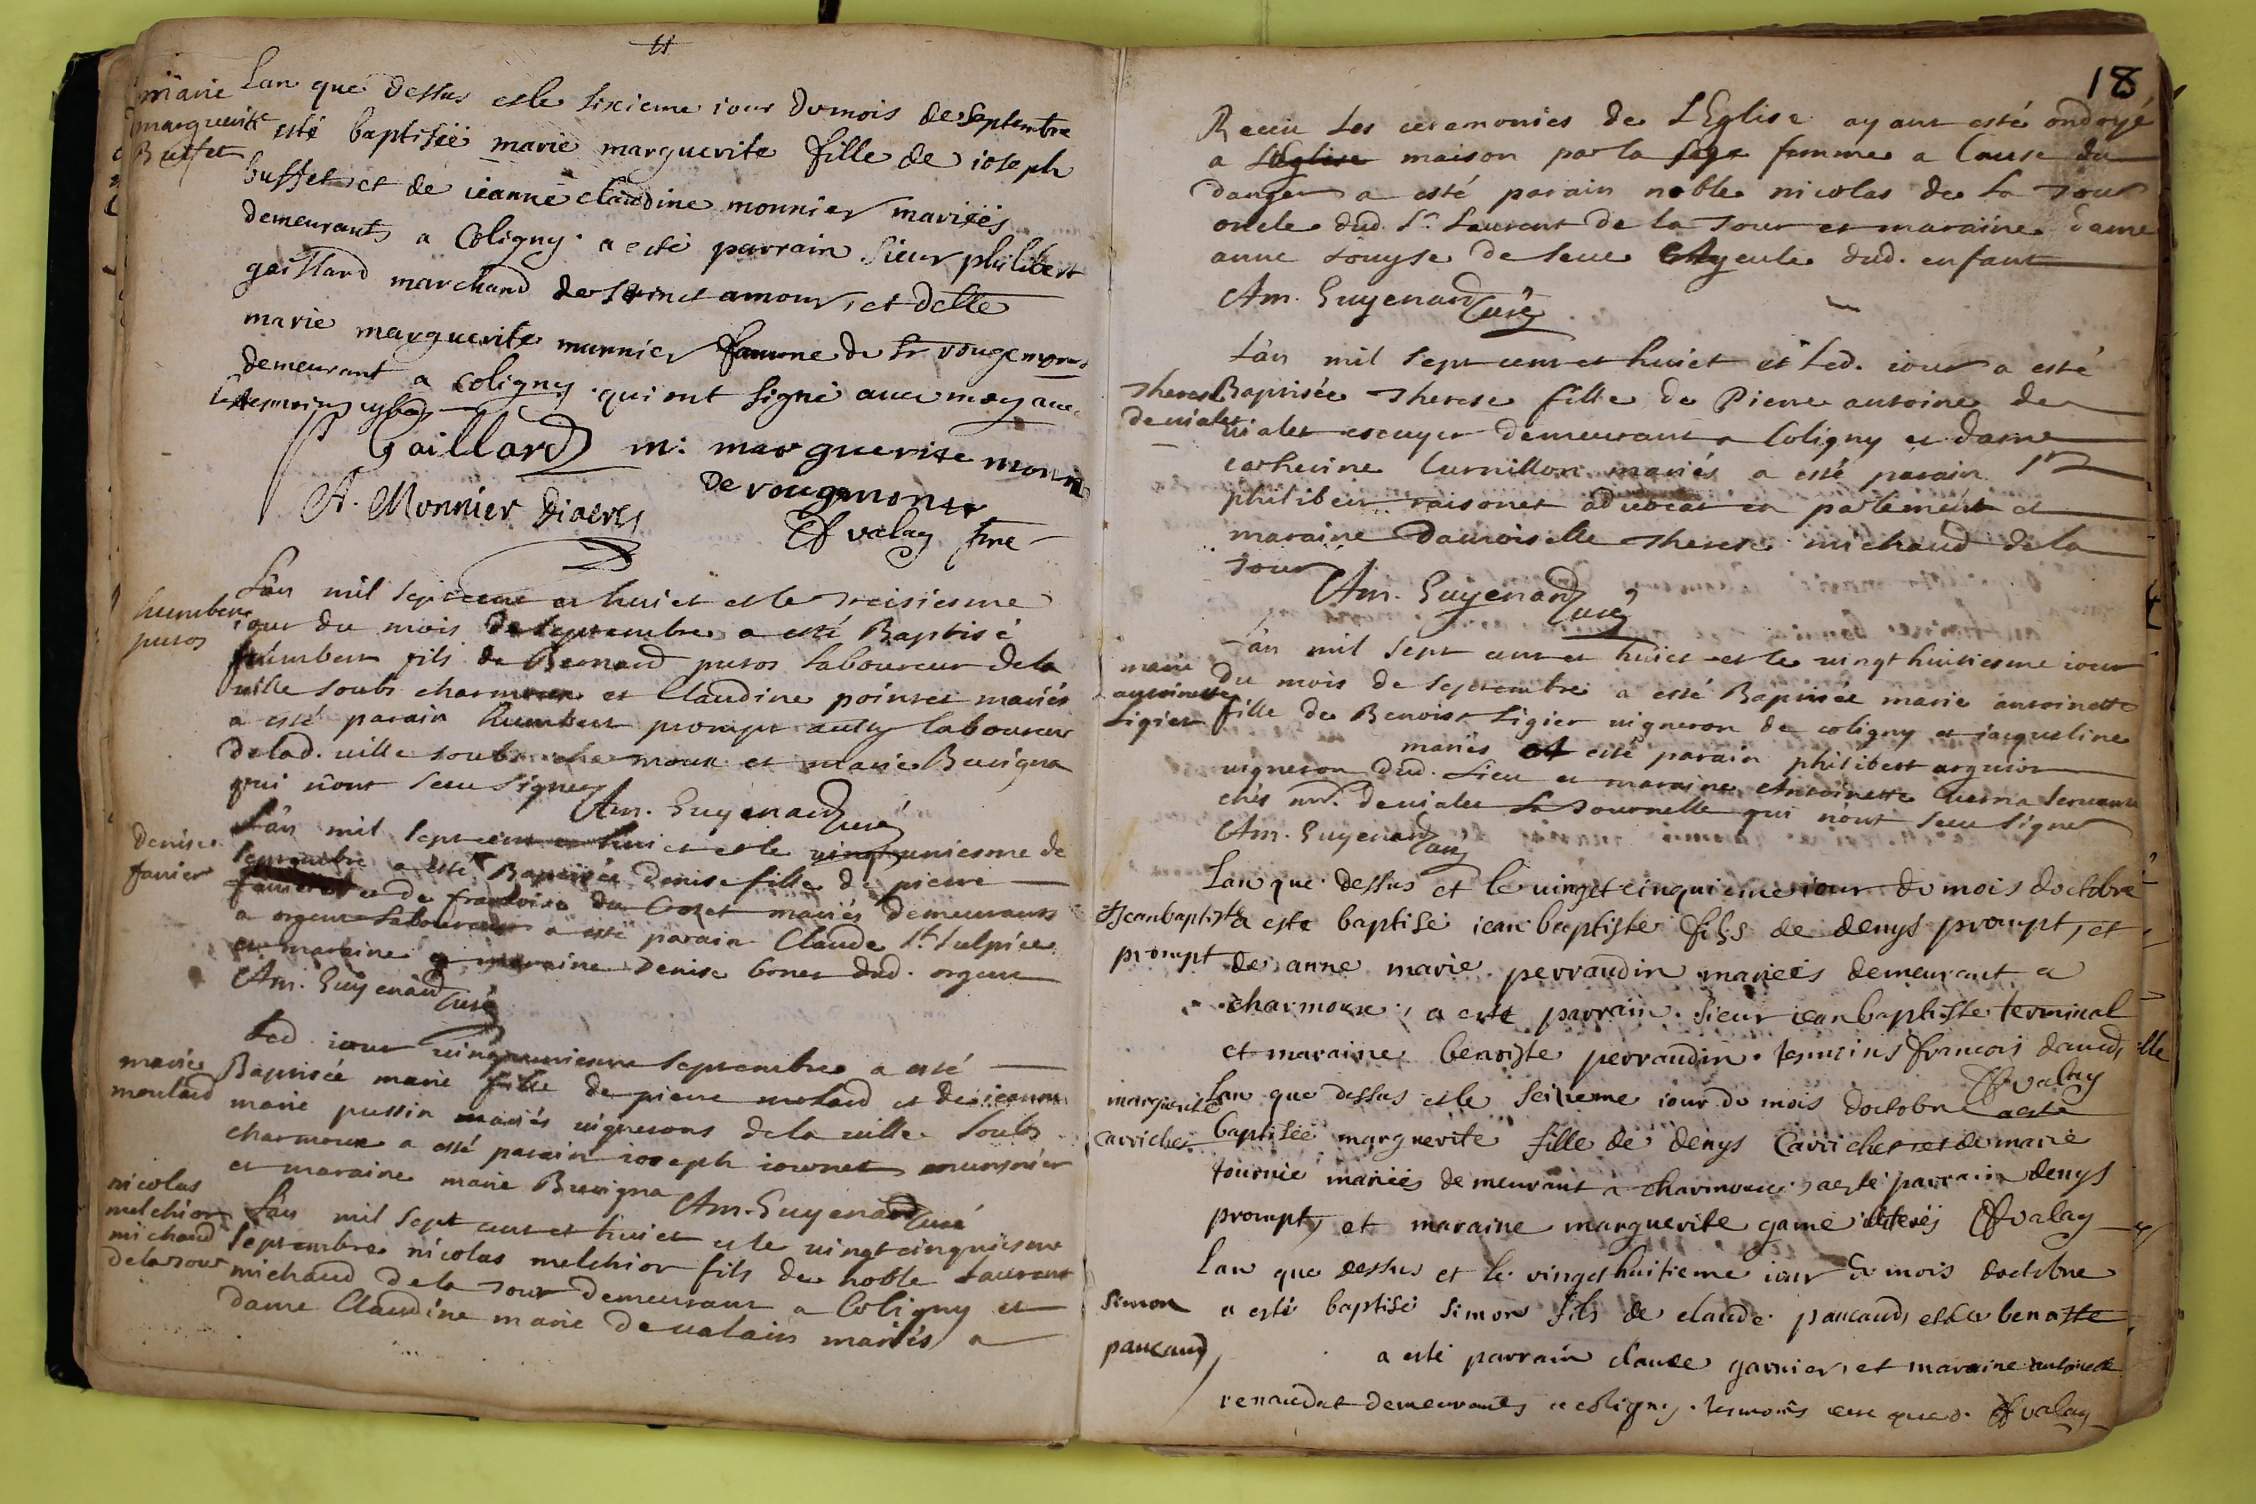 marie
marguerite
Buffet
Lan que dessus et le sixieme iour du mois de septembre
esté baptiseé marie marguerite fille de ioseph
buffet et de ieanne claudine monnier marieés
demeurants a Coligny. a esté parrain sieur philibert
gaillard marchand de st amour, et delle
marie marguerite munnier famme de sr rougemont
demeurant a coligny. qui ont signé avec moy avec
Gaillard m: marguerite monni
A. Monnier diacres de rougemont
Cf valay
humbert
puros
Lân mil sept cent et huict et le treisiesme
iour du mois de septembre a esté Baptisé
humbert fils de Bernard puros laboureur de la
ville soubs charmoux et Claudine pointet mariés
a esté parain humbert prompt aussy laboureur
de lad. ville soubs charmoux et marie Buvigna
qui n'ont sceu signer Am. Guyenard Curé
denise
fanier
Lân mil sept cent et huict et le vingtuniesme de
septembre a esté Baptisée denise fille de pierre
et de francoise du Croset mariés demeurants
a orgeus laboureur a esté parain Claude St Sulpice
et maraine et maraine denise bones dud. orgeus
Am. Guyenard Curé
marie
moulard
Led. iour vingtuniesme septembre a esté
Baptisée marie fille de pierre molard et de ieanne
marie pussin mariés vignerons de la ville soubs
charmoux a esté parain ioseph iournet munsnier
et maraine marie Buvigna Am. Guyenard Curé
nicolas
melchior
michaud
de la tour
Lân mil sept cent et huict et le vingtcinquiesme
septembre nicolas melchior fils de noble Laurent
michaud de la tour demeurant a Coligny et
dame Claudine marie devalains mariés a
18
Receu les ceremonies de L'Eglise ayant esté ondoyé
a L'Eglise maison par la sage femme a Cause du
danger a esté parain noble nicolas de la tour
oncle dud. Sr. Laurent de la tour et maraine dame
anne Louyse de seue Ayeule dud. enfant
Am. Guyenard Curé
Therese
devialet
Lân mil sept cent et huict et led. iour a esté
Baptisée Therese fille de Pierre antoine de
vialet escuyer demeurant a Coligny et dame
catherine Curnillon mariés a esté parain Sr
philibert raisonet advocat en parlement et
maraine damoiselle Therese michaud de la
tour
Am. Guyenard Curé
marie
antoinette
Ligier
Lân mil sept cent et huict et le vingthuitiesme iour
du mois de septembre a esté Baptisée marie antoinette
fille de Benoist Ligier vigneron de coligny et iacqueline
mariés a esté parain philibert arguior
vigneron dud. lieu et maraine Antoinette Cuerna servante
chés mr. devialet la Tournelle qui n'ont sceu signer
Am. Guyenard Curé
Jean baptiste
prompt
Lan que dessus et le vingtcinquieme iour du mois doctobre
a este baptisé iean baptiste fils de denys prompt, et
de anne marie perraudin marieés demeurant a
charmoux, a esté parrain sieur iean baptiste terminal
et maraine benoiste perraudin. tesmoins francois
Cf valay
marguerite
carriche
Lan que dessus et le seizieme iour du mois doctobre a esté
baptisée marguerite fille de denys Carriche et de marie
tournie mariés demeurant a charmoux, a esté parrain denys
prompt, et maraine marguerite game Cf valay
Simon
paucaud
Lan que dessus et le vingthuitieme iour du mois doctobre
a esté baptisé simon fils de claude paucaud, et de benoitte
a esté parrain claude garnier, et maraine antoinette
renaudat demeurants a coligny. tesmoins Cf valay